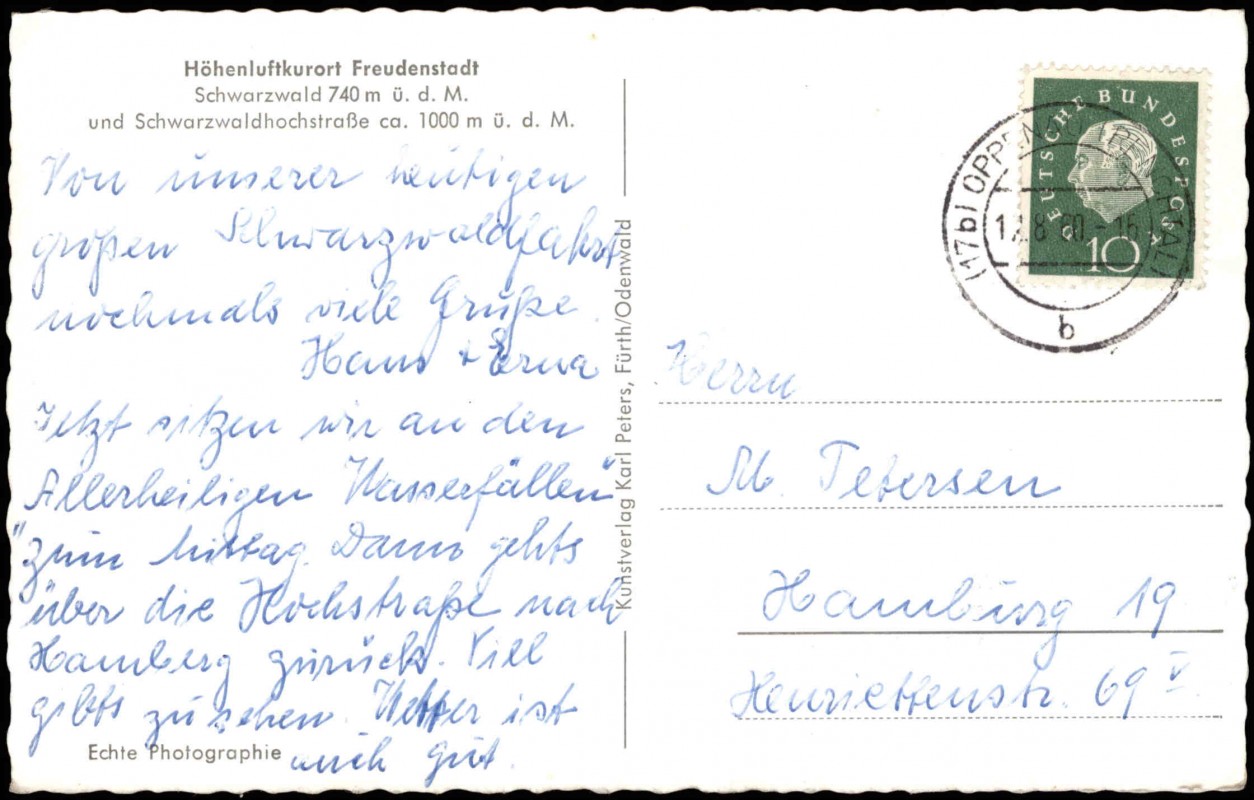 Höhenluftkurort Freudenstadt
Schwarzwald 740 m ü. d. M.
und Schwarzwaldhochstraße ca. 1000 m ü. d. M.
Von unserer heutigen
großen Schwarzwaldfahrt
nochmals viele Grüße.
Hans + Erna
Jetzt sitzen wir an den
Allerheiligen Wasserfällen"
"zum Mittag. Dann gehts
über die Hochstraße nach
Hamberg zurück. Viel
gibts zu sehen. Wetter ist
auch gut.
Echte Photographie
Kunstverlag Karl Peters, Fürth/Odenwald
DEUTSCHE BUNDESPOST
10
(17b) OPPENAU (RENCHTAL)
8 60 - 16
b
Herrn
M. Petersen
Hamburg 19
Henriettenstr. 69 V